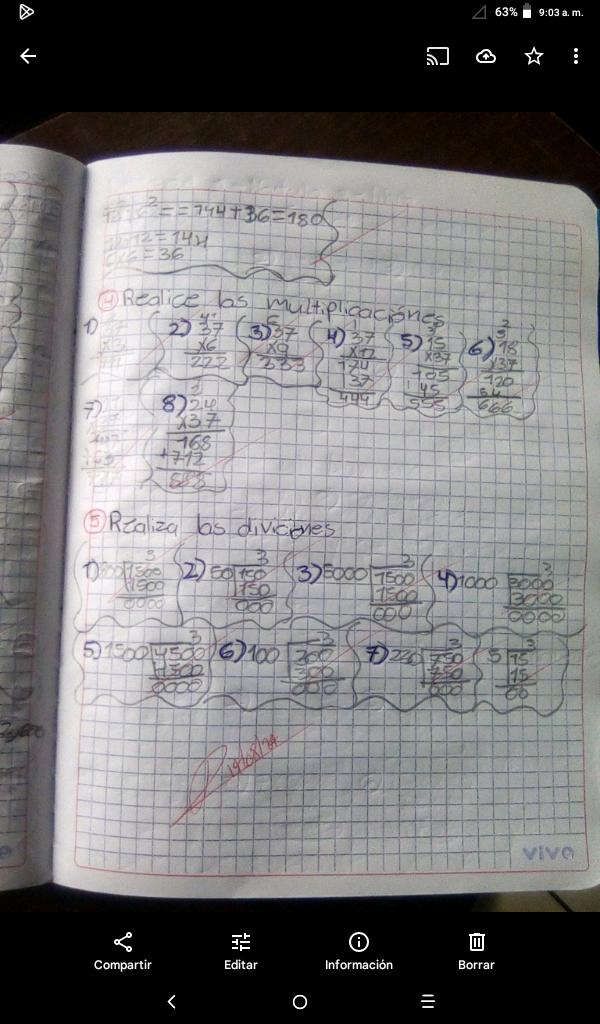 63% 9:03 a. m.
= = 144 + 36 = 180
= 144
6x6 = 36
4 Realice las multiplicaciones
1)
2) 37
x6
222
3) 37
x9
333
4) 37
x12
37
444
5) 15
x37
105
45
555
6) 18
x37
120
54
666
7)
8) 24
x37
168
+712
888
5 Realiza las diviciones
1) 1500 3
1500
0000
2) 50 150 3
150
000
3) 5000 1500 3
1500
000
4) 1000 3000 3
3000
0000
5) 1500 4500 3
4500
0000
6) 100 300 3
300
000
7) 250 750 3
750
000
5 15 3
15
00
vivo
Compartir
Editar
Información
Borrar